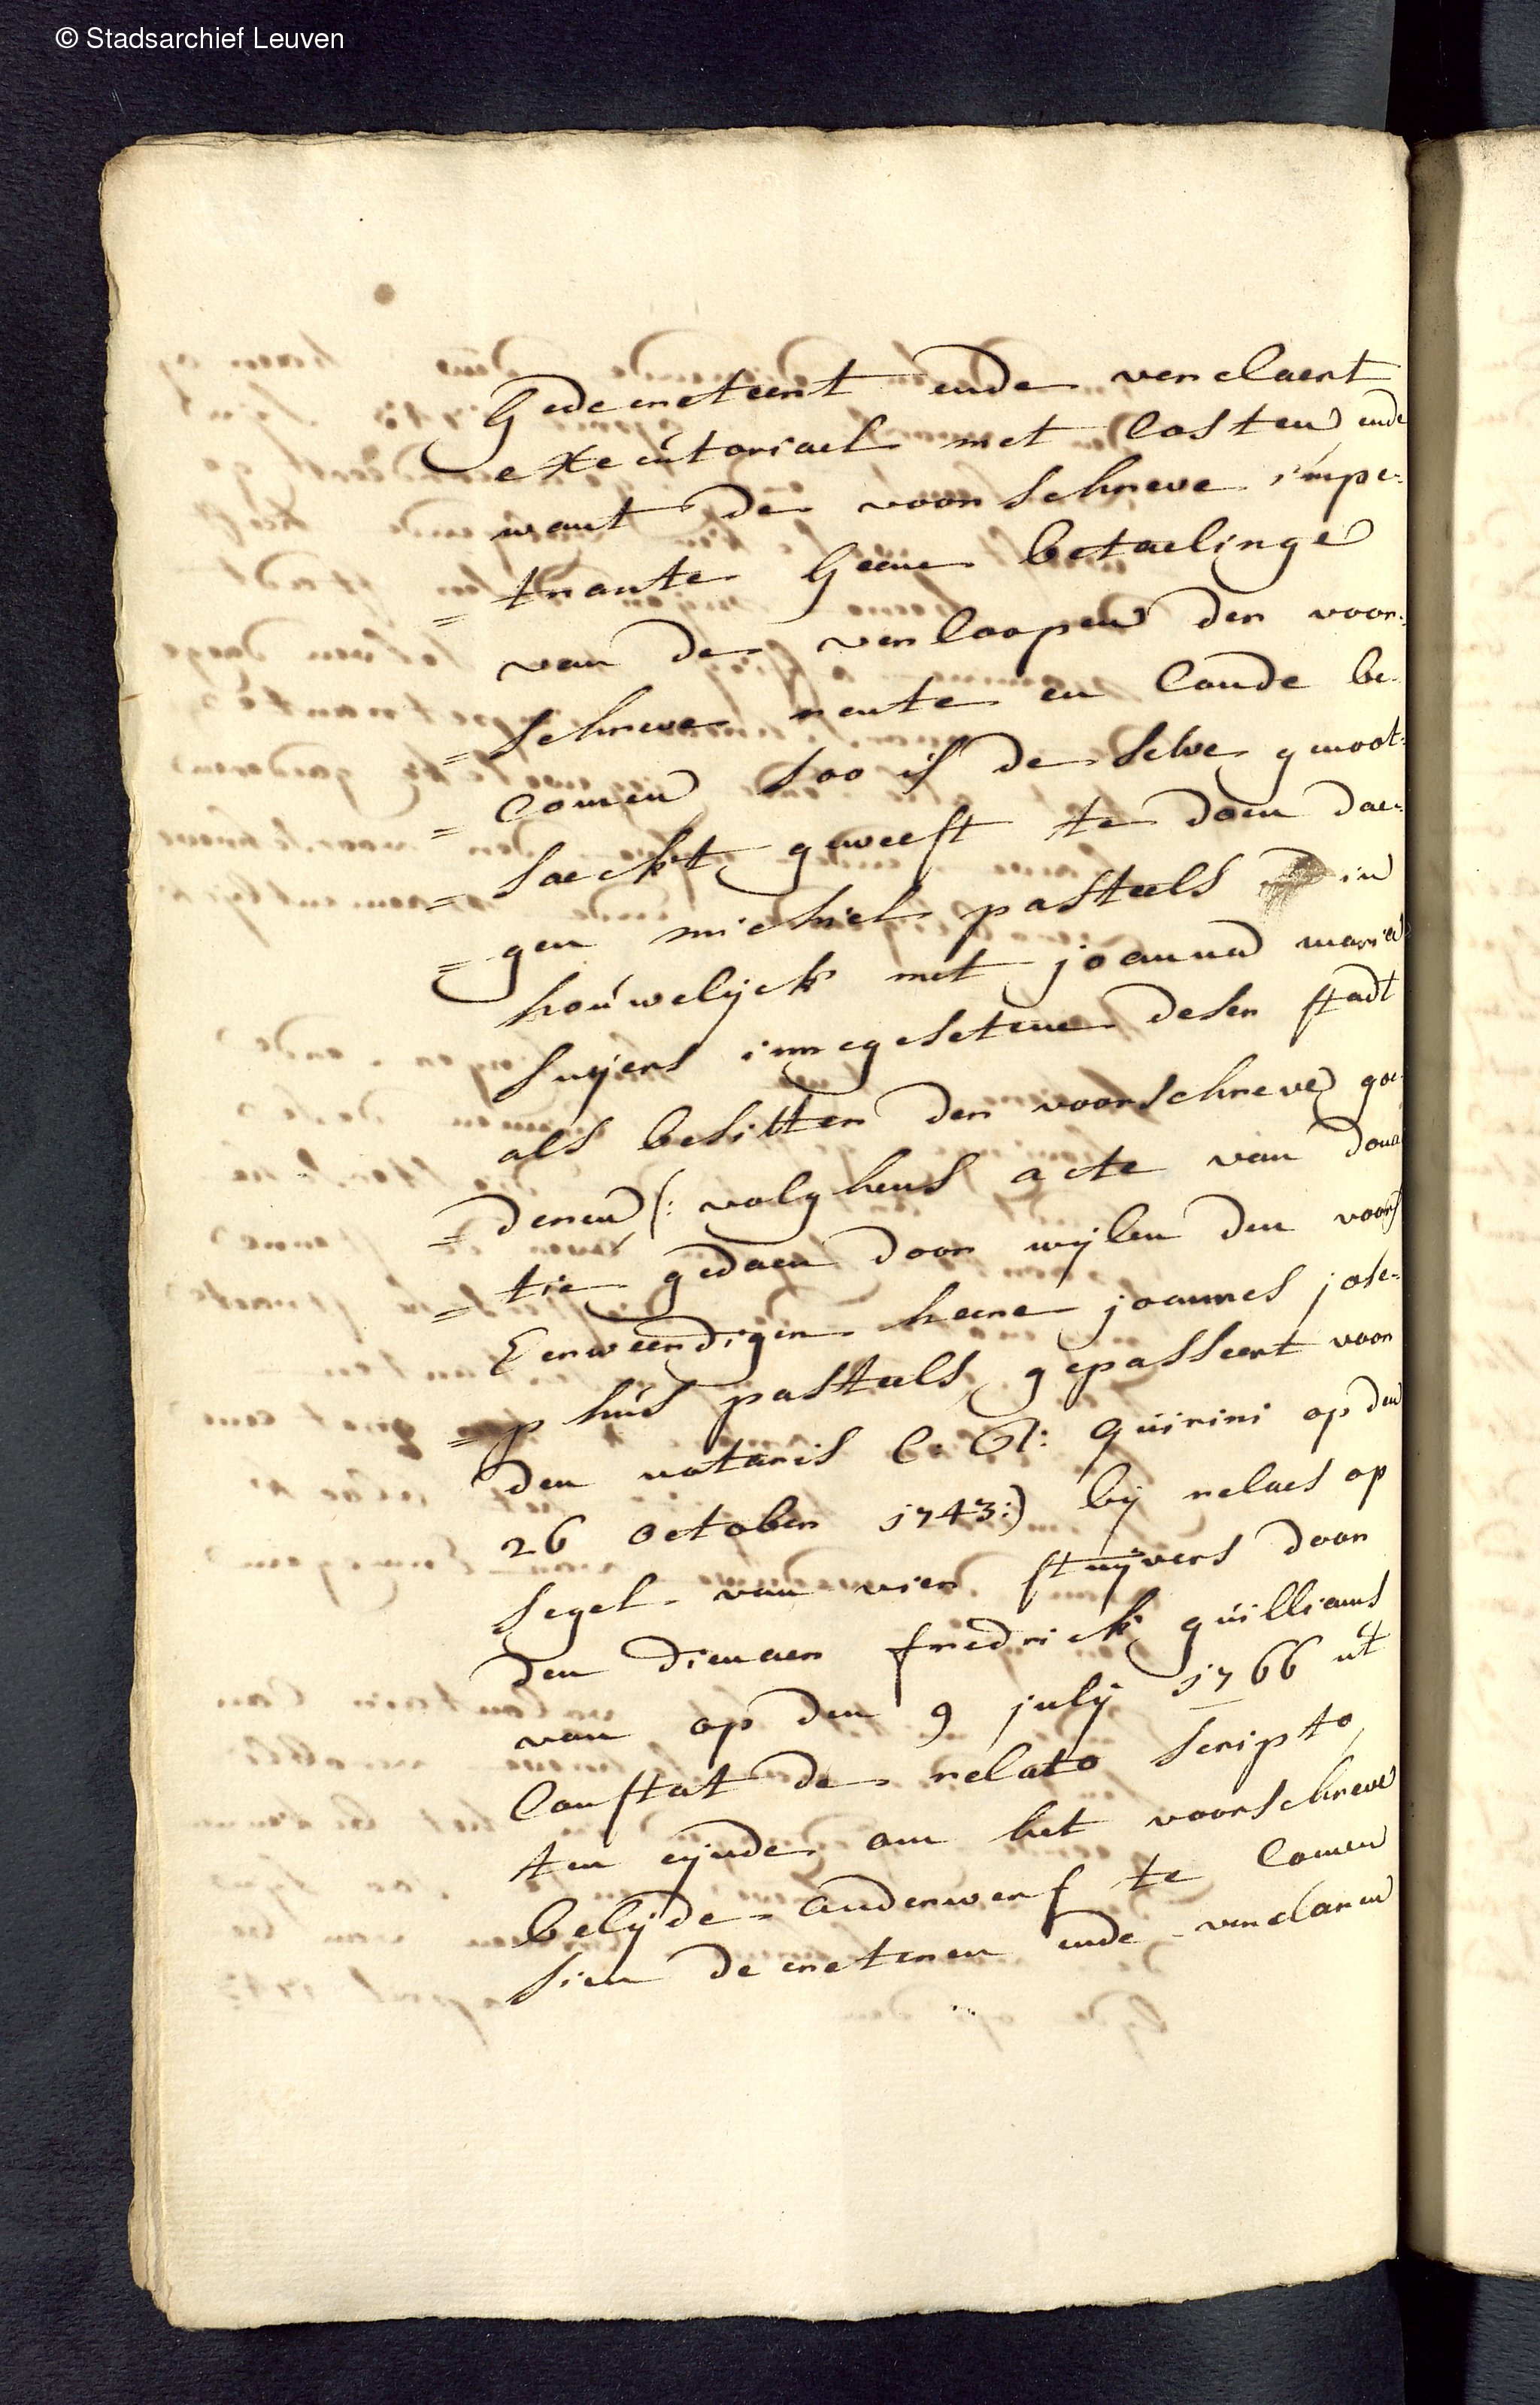 © Stadsarchief Leuven
Gedecreteert ende verclaert
executoriael met costen ende
want de voorschreve impe=
=trante geene betaelinge
van de verloopen der voor=
=schreve rente en conde be=
=comen soo is de selve genoot=
=saeckt geweest te doen dae=
=gen michiel pasteels in
houwelijck met joanna maria
suijers innegesetene deser stadt
als besitter der voorschreve goe=
=deren (: volghens acte van dona
=tie gedaen door wijlen den voors
Eerweerdigen heere joannes jose=
=phus pasteels gepasseert voor
den notaris C: G: Quirini op den
26 october 1743:) bij relaes op
segel van vier stuijvers door
den dienaer fredrick guilliams
van op den 9 julij 1766 ut
Constat de relato scripto,
ten eijnde om het voorschreve
belijde anderwerf te comen
sien decreteren ende verclaren